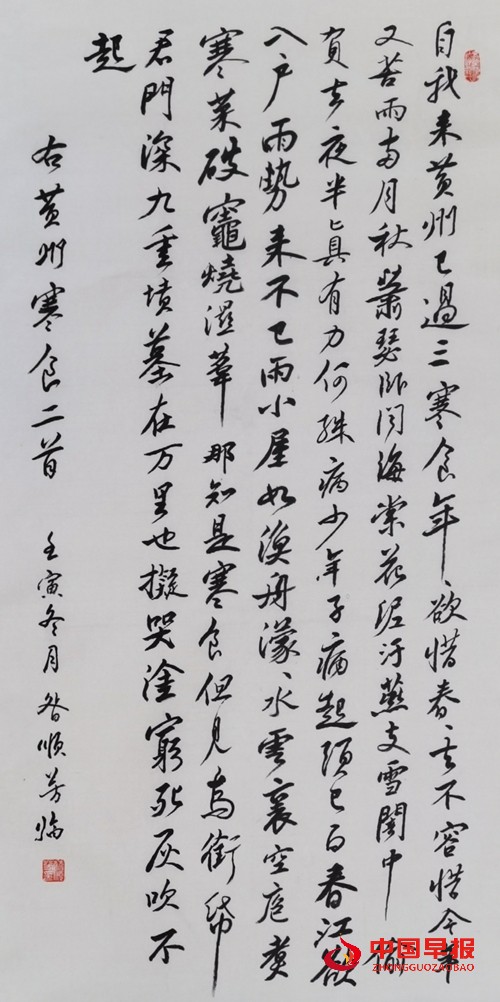 自我来黄州已過三寒食年、欲惜春、去不容惜今年
又苦雨兩月秋蕭瑟卧聞海棠花泥汙燕支雪闇中偷
負去夜半真有力何殊病少年子病起須已白春江欲
入户雨勢来不已雨小屋如漁舟濛、水雲裏空庖煮
寒菜破竈燒濕葦那知是寒食但見烏銜帋
君門深九重墳墓在万里也擬哭塗窮死灰吹不
起
右黄州寒食二首 壬寅冬月 昝順芳临
中国早报
ZHONGGUOZAOBAO